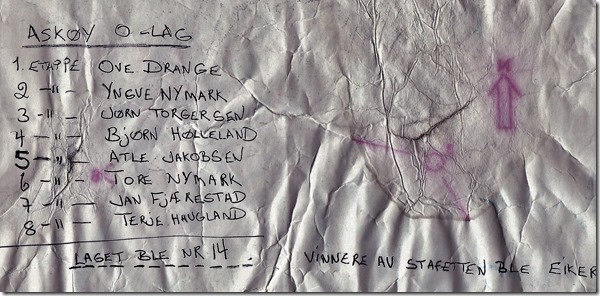 ASKØY O-LAG
1. ETAPPE OVE DRANGE
2 -"- YNGVE NYMARK
3 -"- JØRN TORGERSEN
4 -"- BJØRN HØLLELAND
5 -"- ATLE JAKOBSEN
6 -"- TORE NYMARK
7 -"- JAN FJÆRESTAD
8 -"- TERJE HAUGLAND
LAGET BLE NR 14.
VINNERE AV STAFETTEN BLE EIKER
N